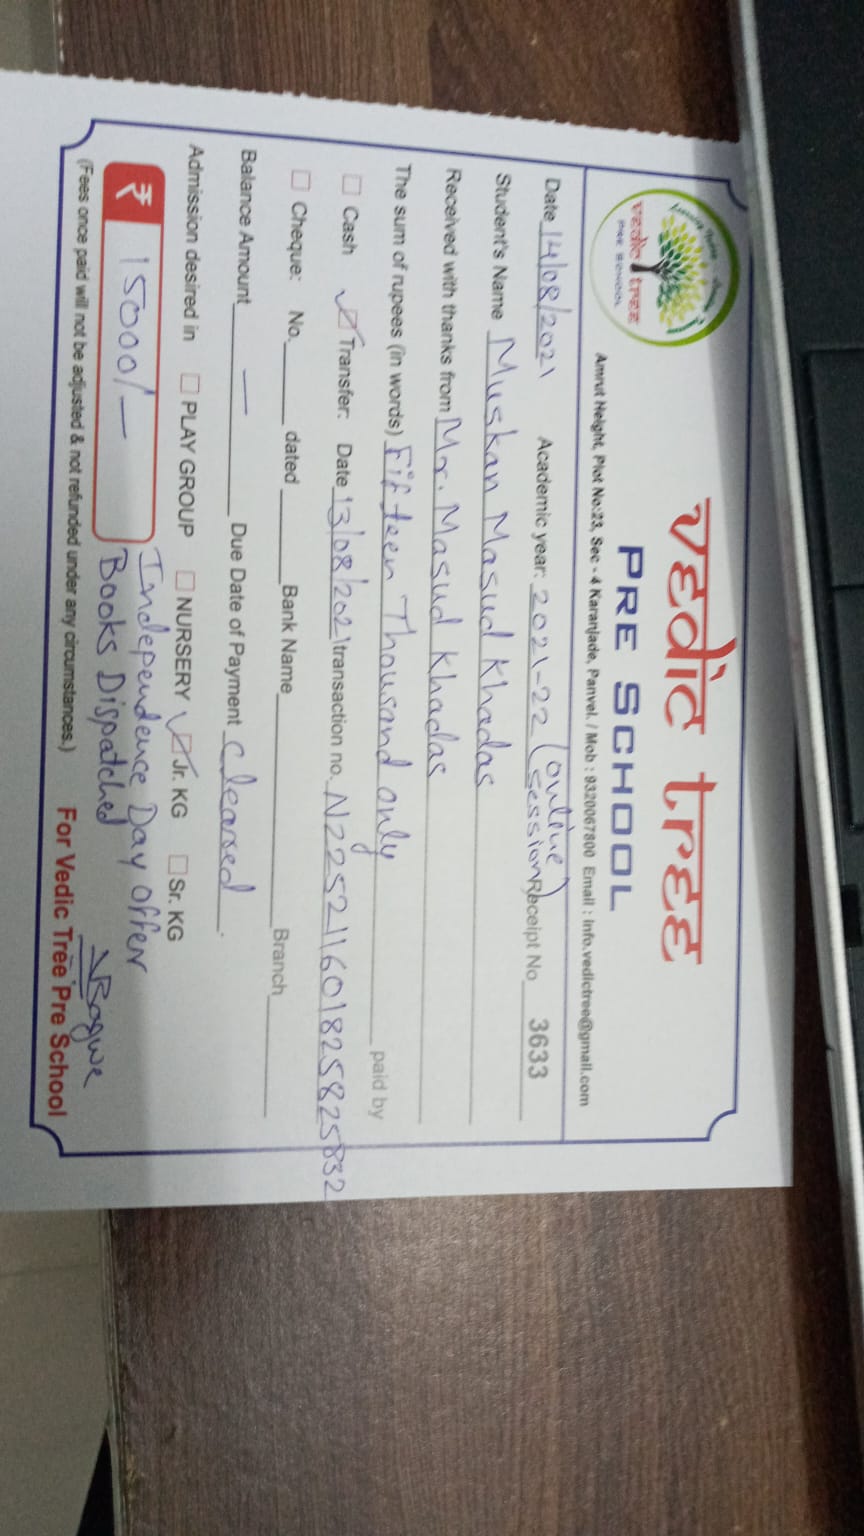 vedic tree
PRE SCHOOL
vedic tree
PRE SCHOOL
Amrut Height, Plot No:23, Sec - 4 Karanjade, Panvel. / Mob : 9320067800 Email : info.vedictree@gmail.com
Date 14/08/2021 Academic year: 2021-22 (Online Session) Receipt No 3633
Student's Name Muskan Masud Khadas
Received with thanks from Mr. Masud Khadas
The sum of rupees (in words) Fifteen Thousand only paid by
Cash Transfer: Date 13/08/2021 transaction no. N225211601825825832
Cheque: No. dated Bank Name Branch
Balance Amount — Due Date of Payment cleared.
Admission desired in PLAY GROUP NURSERY Jr. KG Sr. KG
₹ 15000/- Independence Day offer
Books Dispatched
(Fees once paid will not be adjusted & not refunded under any circumstances.) For Vedic Tree Pre School